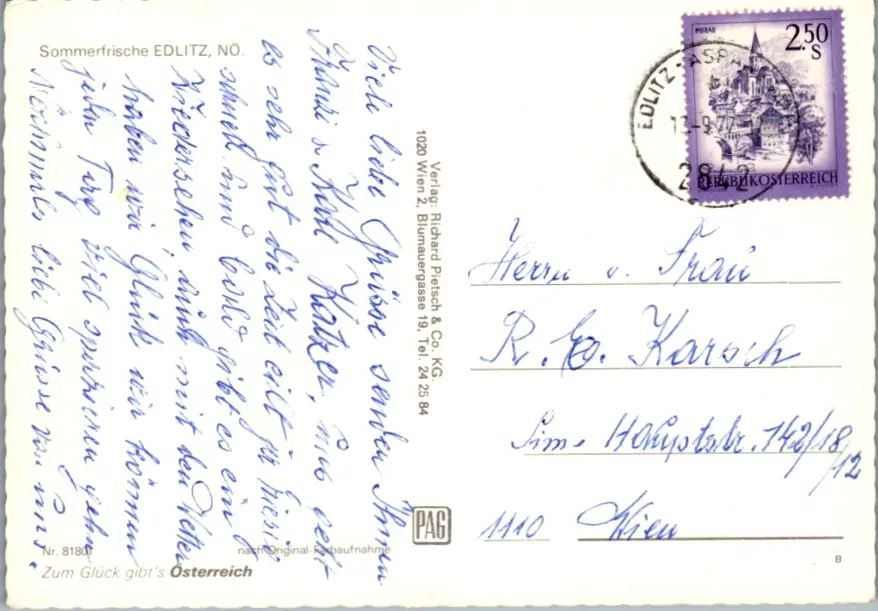 Sommerfrische EDLITZ, NÖ.
Viele liebe Grüsse senden Ihnen
Hansi u Karl Katzer, uns geht
es sehr gut die Zeit eilt zu
schnell und bald gibt es ein
Wiedersehen, auch mit den Wetter
haben wir Glück wir können
jeden Tag viel spazieren gehn
Nochmals liebe Grüsse von Uns.
Nr. 81801
nach Original-Farbaufnahme
Zum Glück gibt's Österreich
Verlag: Richard Pietsch & Co. KG.
1020 Wien 2, Blumauergasse 19, Tel. 24 25 84
PAG
MURAU
2.50
S
REPUBLIK ÖSTERREICH
EDLITZ-ASPA
13-9.77
2842
Herrn u. Frau
R. E. Karsch
Sim. Hauptstr. 142/18/12
1110 Wien
8